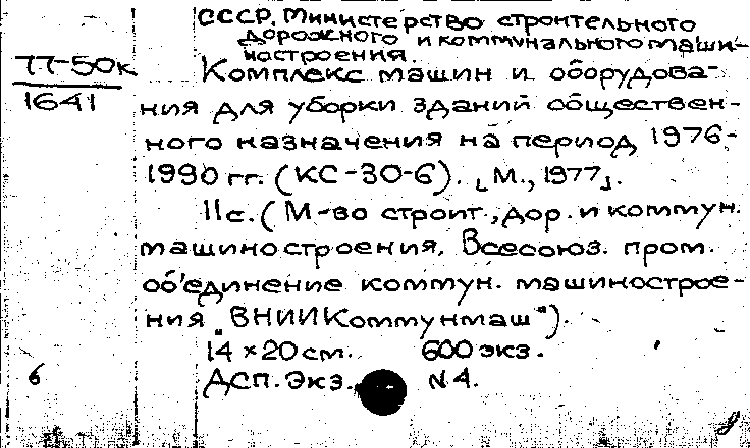 СССР. Министерство строительного
дорожного и коммунального маши-
ностроения.
77-50к
1641
Комплекс машин и оборудова-
ния для уборки зданий обществен-
ного назначения на период 1976-
1990 гг. (КС-30-6). [М., 1977].
11с. (М-во строит., дор. и коммун.
машиностроения. Всесоюз. пром.
об'единение коммун. машинострое-
ния "ВНИИКоммунмаш").
14 × 20 см. 600 экз.
6
ДСП. Экз. N 4.